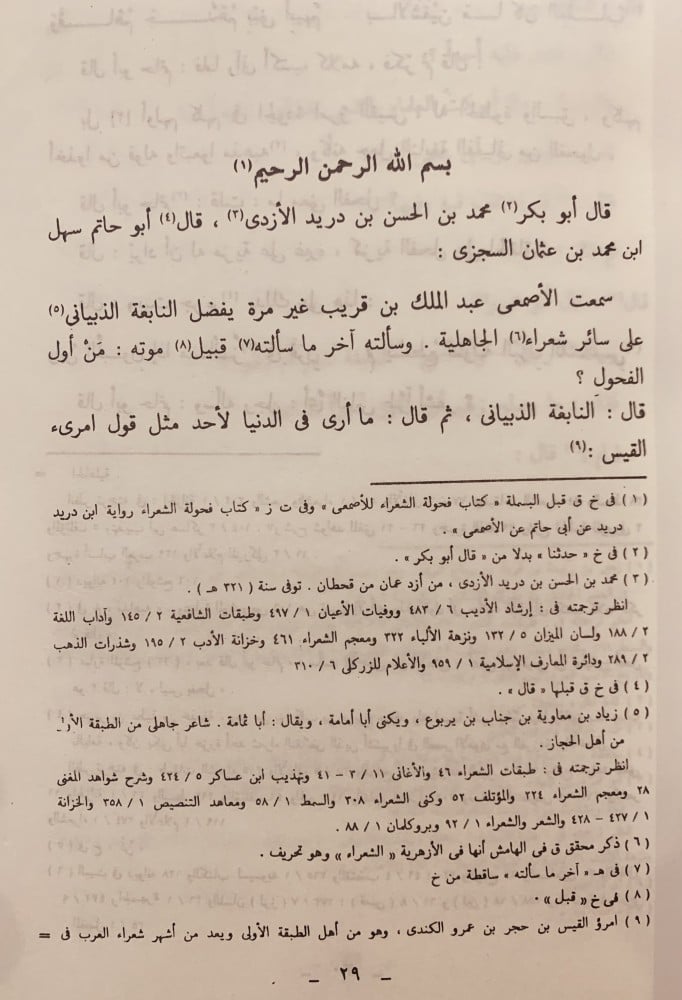 بسم الله الرحمن الرحيم(١)
قال أبو بكر(٢) محمد بن الحسن بن دريد الأزدى(٣) ، قال(٤) أبو حاتم سهل
ابن محمد بن عثمان السجزى :
سمعت الأصمعى عبد الملك بن قريب غير مرة يفضل النابغة الذبيانى(٥)
على سائر شعراء(٦) الجاهلية . وسألته آخر ما سألته(٧) قبيل(٨) موته : مَنْ أول
الفحول ؟
قال : النابغة الذبيانى ، ثم قال : ما أرى فى الدنيا لأحد مثل قول امرىء
القيس :(٩)
(١) فى خ ق قبل البسملة « كتاب فحولة الشعراء للأصمعى » وفى ت ز « كتاب فحولة الشعراء رواية ابن دريد
دريد عن أبى حاتم عن الأصمعى » .
(٢) فى خ « حدثنا » بدلا من « قال أبو بكر » .
(٣) محمد بن الحسن بن دريد الأزدى ، من أزد عمان من قحطان . توفى سنة ( ٣٢١ هـ ) .
انظر ترجمته فى : إرشاد الأديب ٦ / ٤٨٣ ووفيات الأعيان ١ / ٤٩٧ وطبقات الشافعية ٢ / ١٤٥ وآداب اللغة
٢ / ١٨٨ ولسان الميزان ٥ / ١٣٢ ونزهة الألباء ٣٢٢ ومعجم الشعراء ٤٦١ وخزانة الأدب ٢ / ١٩٥ وشذرات الذهب
٢ / ٢٨٩ ودائرة المعارف الإسلامية ١ / ٩٥٩ والأعلام للزركلى ٦ / ٣١٠
(٤) فى خ ق قبلها « قال » .
(٥) زياد بن معاوية بن جناب بن يربوع ، ويكنى أبا أمامة ، ويقال : أبا ثمامة . شاعر جاهلى من الطبقة
من أهل الحجاز .
انظر ترجمته فى : طبقات الشعراء ٤٦ والأغانى ١١ / ٣ - ٤١ وتهذيب ابن عساكر ٥ / ٤٢٤ وشرح شواهد المغنى
٢٨ ومعجم الشعراء ٢٢٤ والمؤتلف ٥٢ وكنى الشعراء ٣٠٨ والسمط ١ / ٥٨ ومعاهد التنصيص ١ / ٣٥٨ والخزانة
١ / ٤٢٧ - ٤٢٨ والشعر والشعراء ١ / ٩٢ وبروكلمان ١ / ٨٨ .
(٦) ذكر محقق ق فى الهامش أنها فى الأزهرية « الشعراء » وهو تحريف .
(٧) فى هـ « آخر ما سألته » ساقطة من خ
(٨) فى خ « قبل » .
(٩) امرؤ القيس بن حجر بن عمرو الكندى ، وهو من أهل الطبقة الأولى ويعد من أشهر شعراء العرب فى =
- ٢٩ -